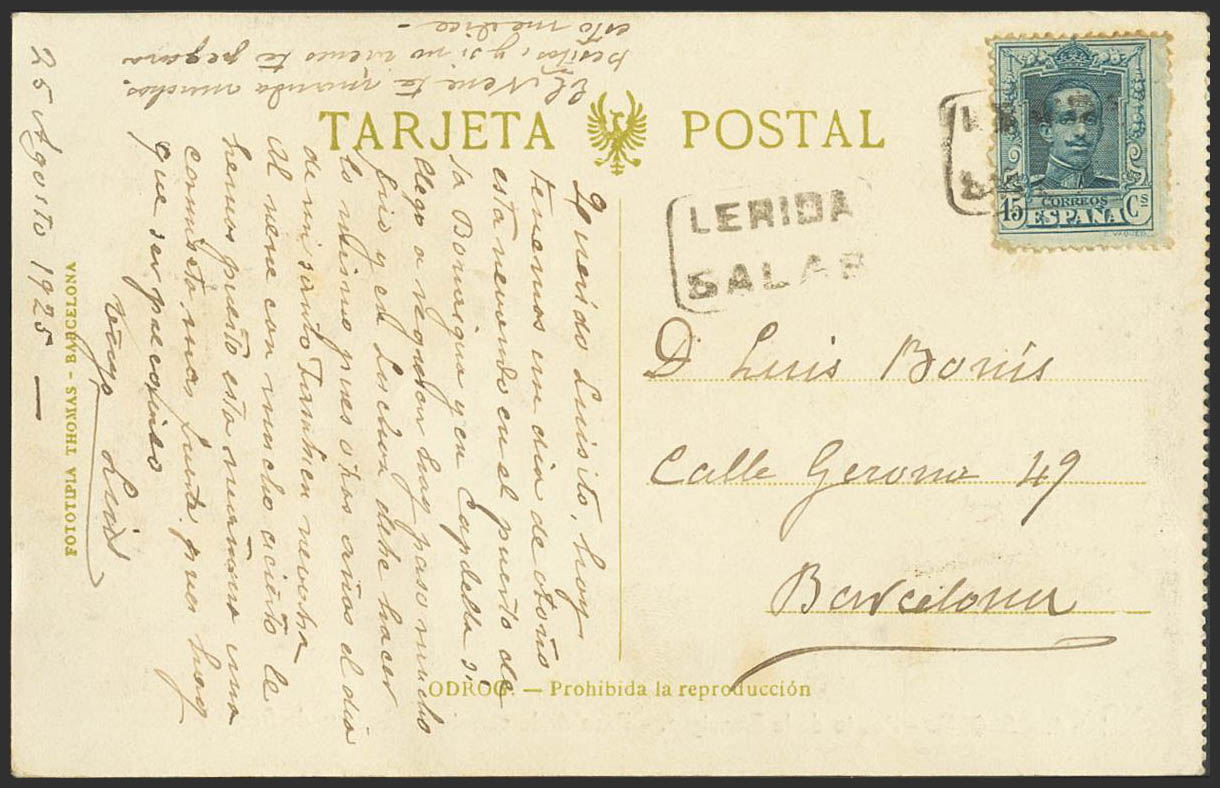 TARJETA POSTAL
LERIDA
SALAR
15 CORREOS Cs
ESPAÑA
D Luis Bonís
Calle Gerona 49
Barcelona
Querido Luisito, hoy
tenemos un dia de otoño
esta nevando en el puerto de
la Bonaigua y en Capdella si
llego a negdon hay paso mucho
frio y en Luchon debe hacer
lo mismo pues otros años el dia
de mi santo tambien nevaba
Al nene con mucho acierto le
hemos puesto esta mañana una
camiseta mas fuerte pues hay
que ser precavido
25 Agosto 1925 —
El Nene te manda muchos
besitos, y si no vienes te pegara
esto me dice —
FOTOTIPIA THOMAS - BARCELONA
ODROG. — Prohibida la reproducción